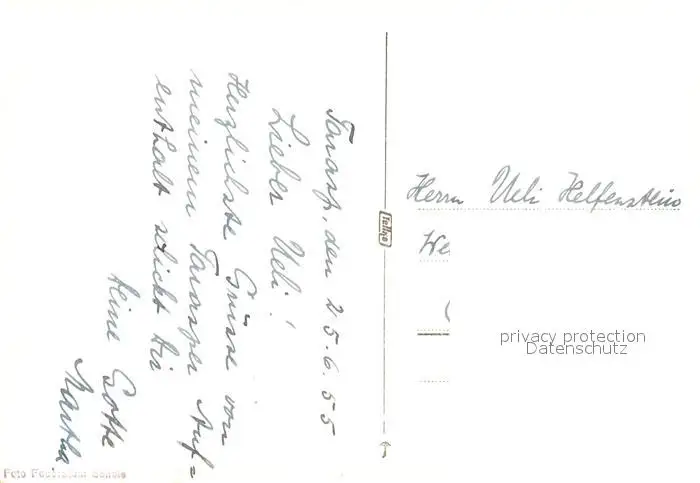 Tarasp, den 25.6.55
Lieber Ueli!
Herzlichste Grüsse von
meinem Tarasper Auf=
enthalt schickt Dir
Deine Gotte
Martha
Telko
Herrn Ueli Helfenstein
We
privacy protection
Datenschutz
Foto Feuerstein Schuls